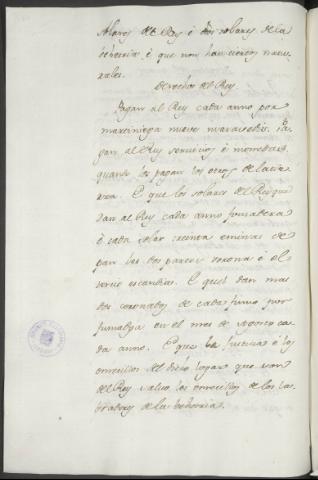 solares del Rey è dos solares de la
behetria è que non han ciertos natu-
rales.
Derechos del Rey
Pagan al Rey cada anno por
martiniega nueve maravedis: Pa-
gan al Rey servicios è monedas,
quando los pagan los otros de la tie-
rra. E que los solares del Rey que
dan al Rey cada anno fumadera
è cada solar treinta eminas de
pan las dos partes cerona è el
tercio escandia. E quel dan mas
dos coronados de cada fumo por
fumalga en el mes de agosto ca-
da anno. E que la justicia è los
omecillos del dicho logar que son
del Rey salvo los omecillos de los la-
bradores de la behetria.